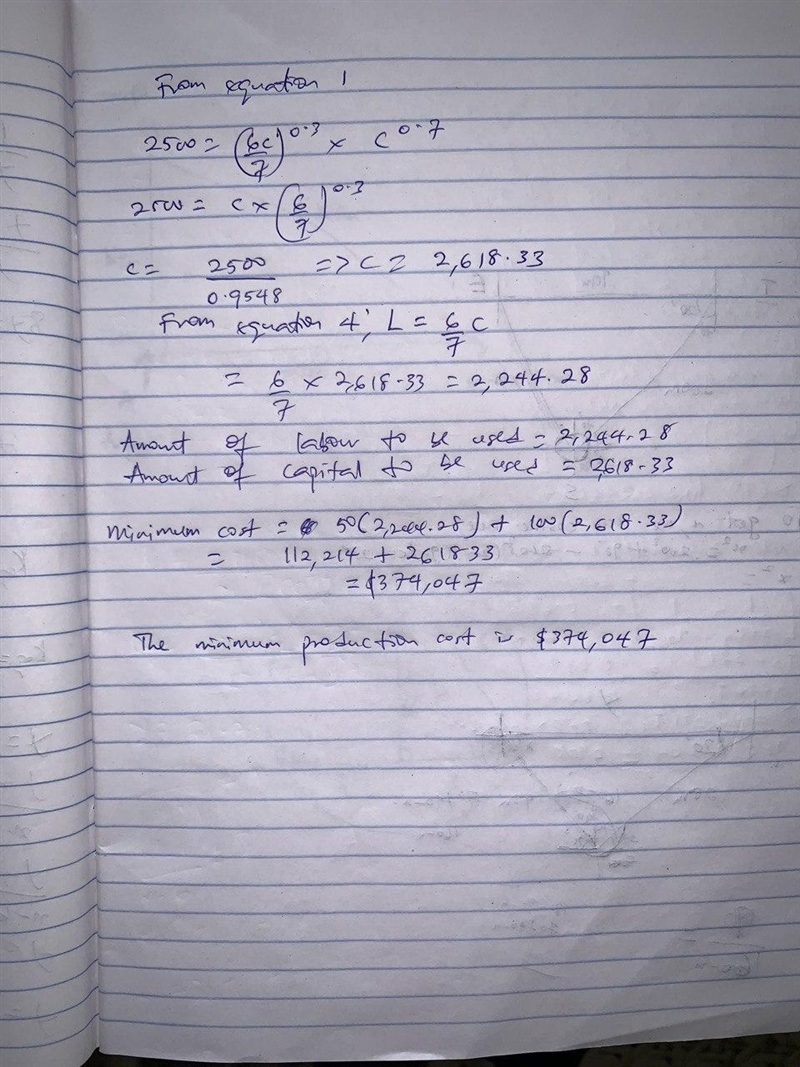 From equation 1
2500 = (6C/7)^0.3 × C^0.7
2500 = C × (6/7)^0.3
C = 2500/0.9548 => C = 2,618.33
From equation 4; L = 6/7 C
= 6/7 × 2,618.33 = 2,244.28
Amount of labour to be used = 2,244.28
Amount of capital to be used = 2,618.33
Minimum cost = 50(2,244.28) + 100(2,618.33)
= 112,214 + 261833
= $374,047
The minimum production cost is $374,047